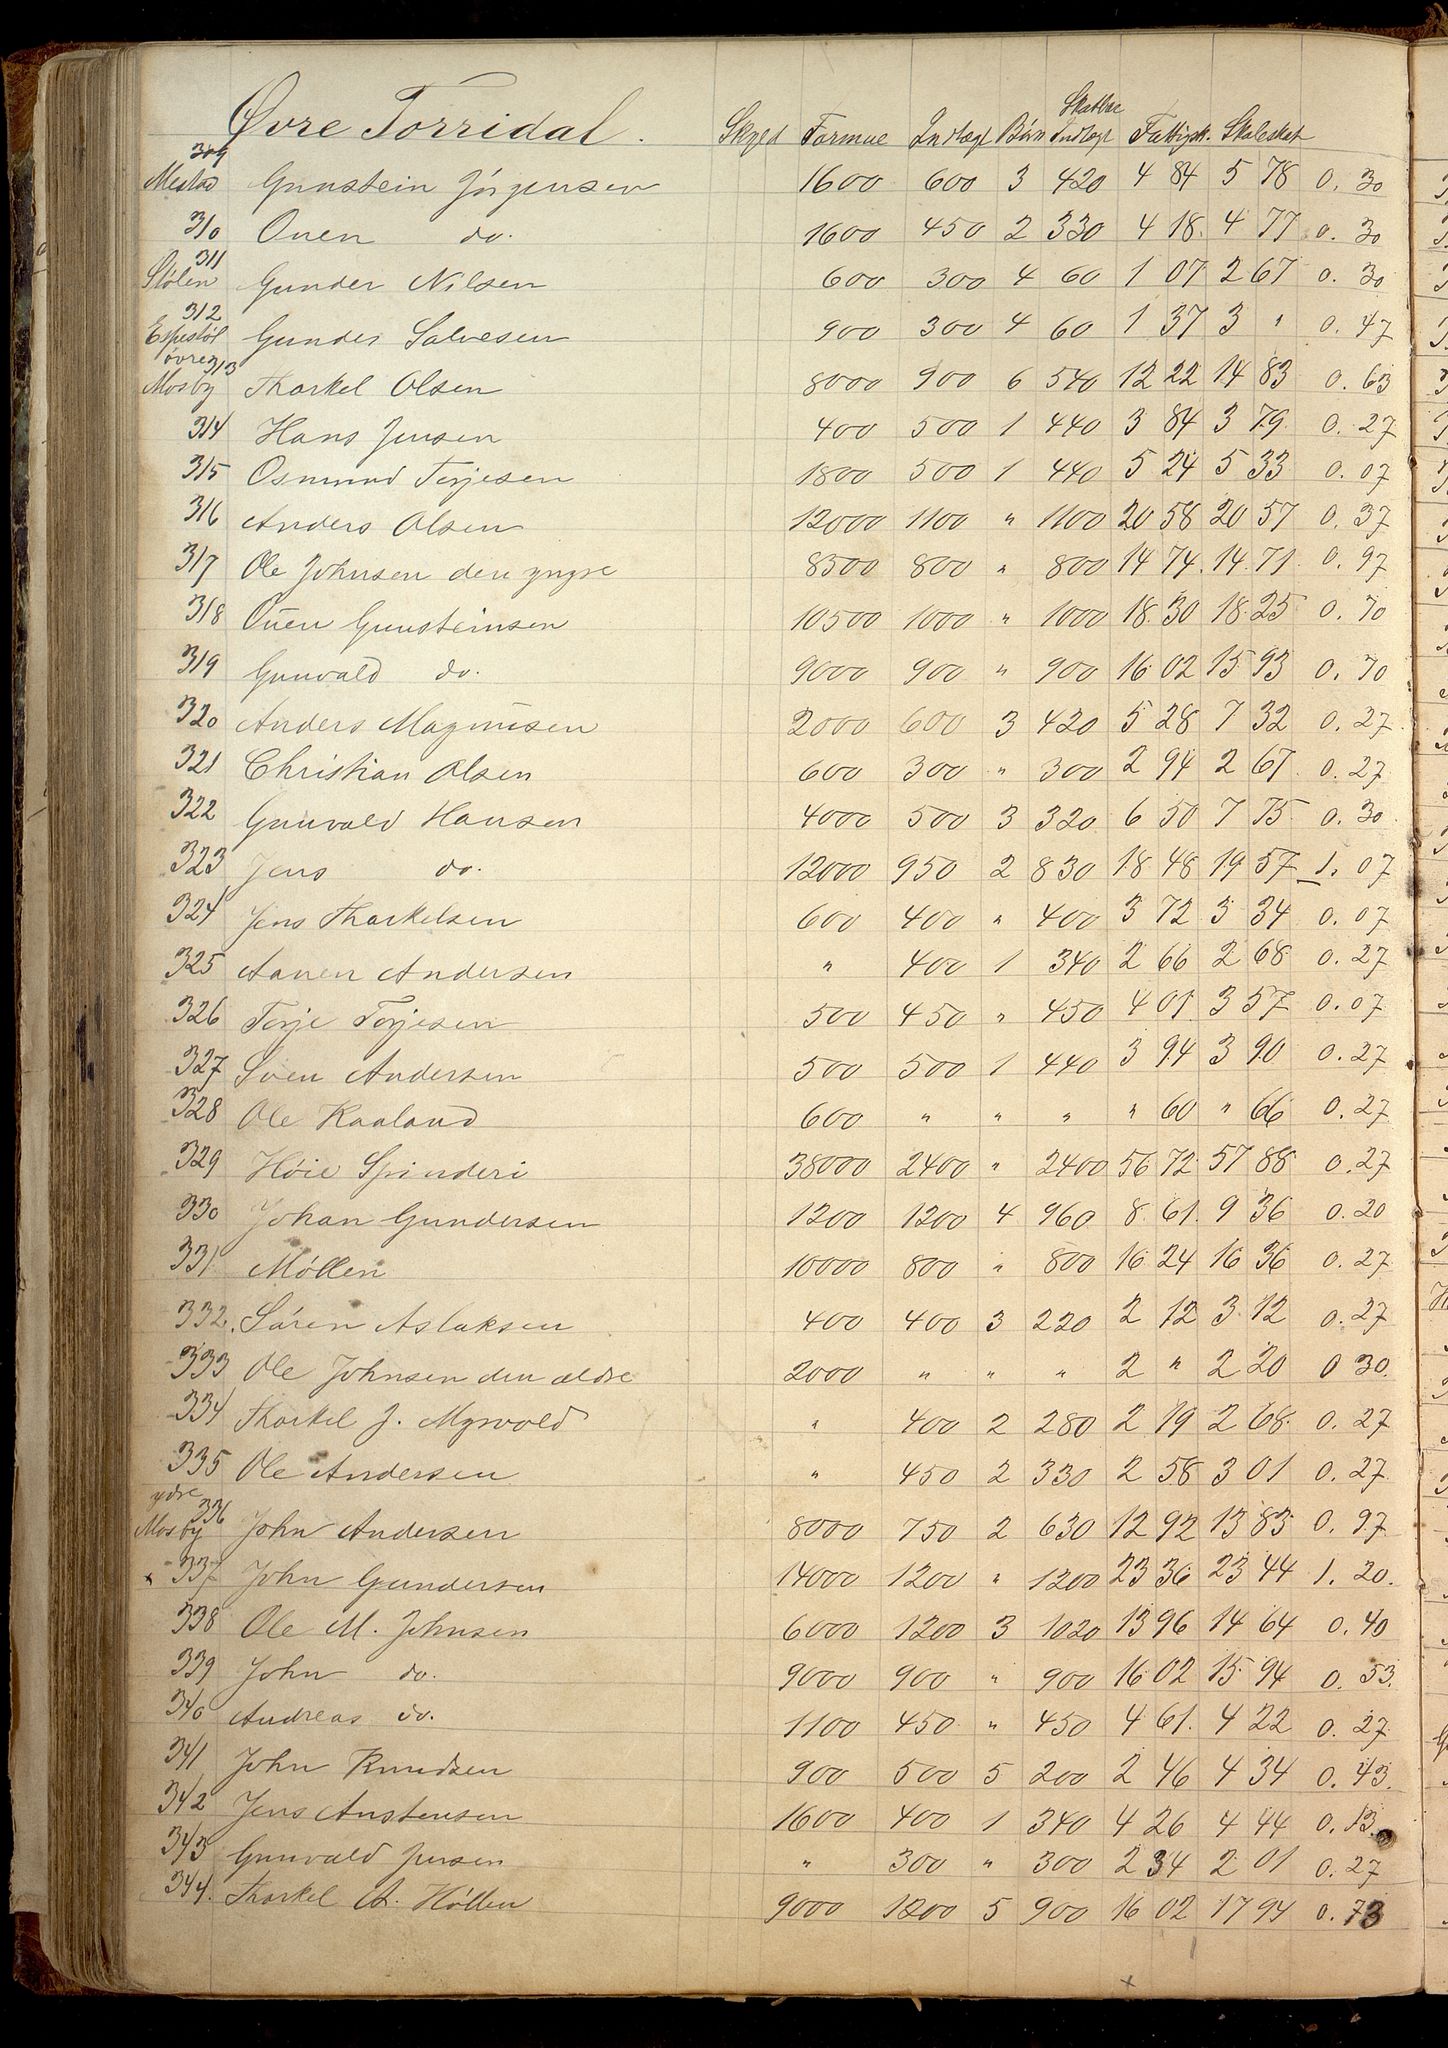 Øvre Torridal. Skyld Formue Indtægt Børn Skatbar Indtægt Fattigsk. Skoleskat
309 Mestad Gunstein Jørgensen 1600 600 3 420 4 84 5 78 0. 30
310 Ouen do. 1600 450 2 330 4 18. 4 77 0. 30
311 Stølen Gunder Nilsen 600 300 4 60 1 07 2 67 0. 30
312 Espestøl Gunder Salvesen 900 300 4 60 1 37 3 " 0. 47
øvre 313 Mosby Thorkel Olsen 8000 900 6 540 12 22 14 83 0. 63
314 Hans Jensen 400 500 1 440 3 84 3 79. 0. 27
315 Osmund Terjesen 1800 500 1 440 5 24 5 33 0. 07
316 Anders Olsen 12000 1100 " 1100 20 58 20 57 0. 37
317 Ole Johnsen den yngre 8500 800 " 800 14 74. 14. 71. 0. 97
318 Ouen Gunsteinsen 10500 1000 " 1000 18. 30 18 25 0. 70
319 Gunvald do. 9000 900 " 900 16 02 15 93 0. 70
320 Anders Magnusen 2000 600 3 420 5 28 7 32 0. 27.
321 Christian Olsen 600 300 " 300 2 94 2 67. 0. 27
322 Gunvald Hansen 4000 500 3 320 6 50 7 75. 0. 30.
323 Jens do. 12000 950 2 830 18 48 19 57 1. 07
324 Jens Thorkelsen 600 400 " 400 3 72 3 34 0. 07
325 Aanen Andersen " 400 1 340 2 66 2 68 0. 27
326 Terje Terjesen 500 450 " 450 4 01. 3 57 0. 07
327 Sven Andersen 500 500 1 440 3 94 3 90 0. 27
328 Ole Kaaland 600 " " " " 60 " 66 0. 27
329 Høie Spinderi 38000 2400 " 2400 56 72 57 88 0. 27
330 Johan Gundersen 1200 1200 4 960 8. 61. 9 36 0. 20
331 Møllen 10000 800 " 800 16 24 16 36 0. 27
332. Søren Aslaksen 400 400 3 220 2 12 3 12 0. 27
333 Ole Johnsen den ældre 2000 " " " 2 " 2 20 0 30.
334 Thorkel J. Myrvold " 400 2 280 2 19 2 68. 0. 27
335 Ole Andersen " 450 2 330 2 58 3 01 0. 27
ydre 336 Mosby John Andersen 8000 750 2 630 12 92 13 83 0. 97
x 337 John Gundersen 14000 1200 " 1200 23 36 23 44 1. 20.
338 Ole M. Johnsen 6000 1200 3 1020 13 96 14 64 0. 40
339 John do. 9000 900 " 900 16 02 15 94 0. 53.
340 Andreas do. 1100 450 " 450 4 61. 4 22 0. 27
341 John Knudsen 900 500 5 200 2 46 4 34 0. 43.
342 Jens Anstensen 1600 400 1 340 4 26 4 44 0. 13.
343 Gunvald Jensen " 300 " 300 2 34 2 01 0. 27
344. Thorkel A. Høllen 9000 1200 5 900 16 02 17 94 0. 73
x